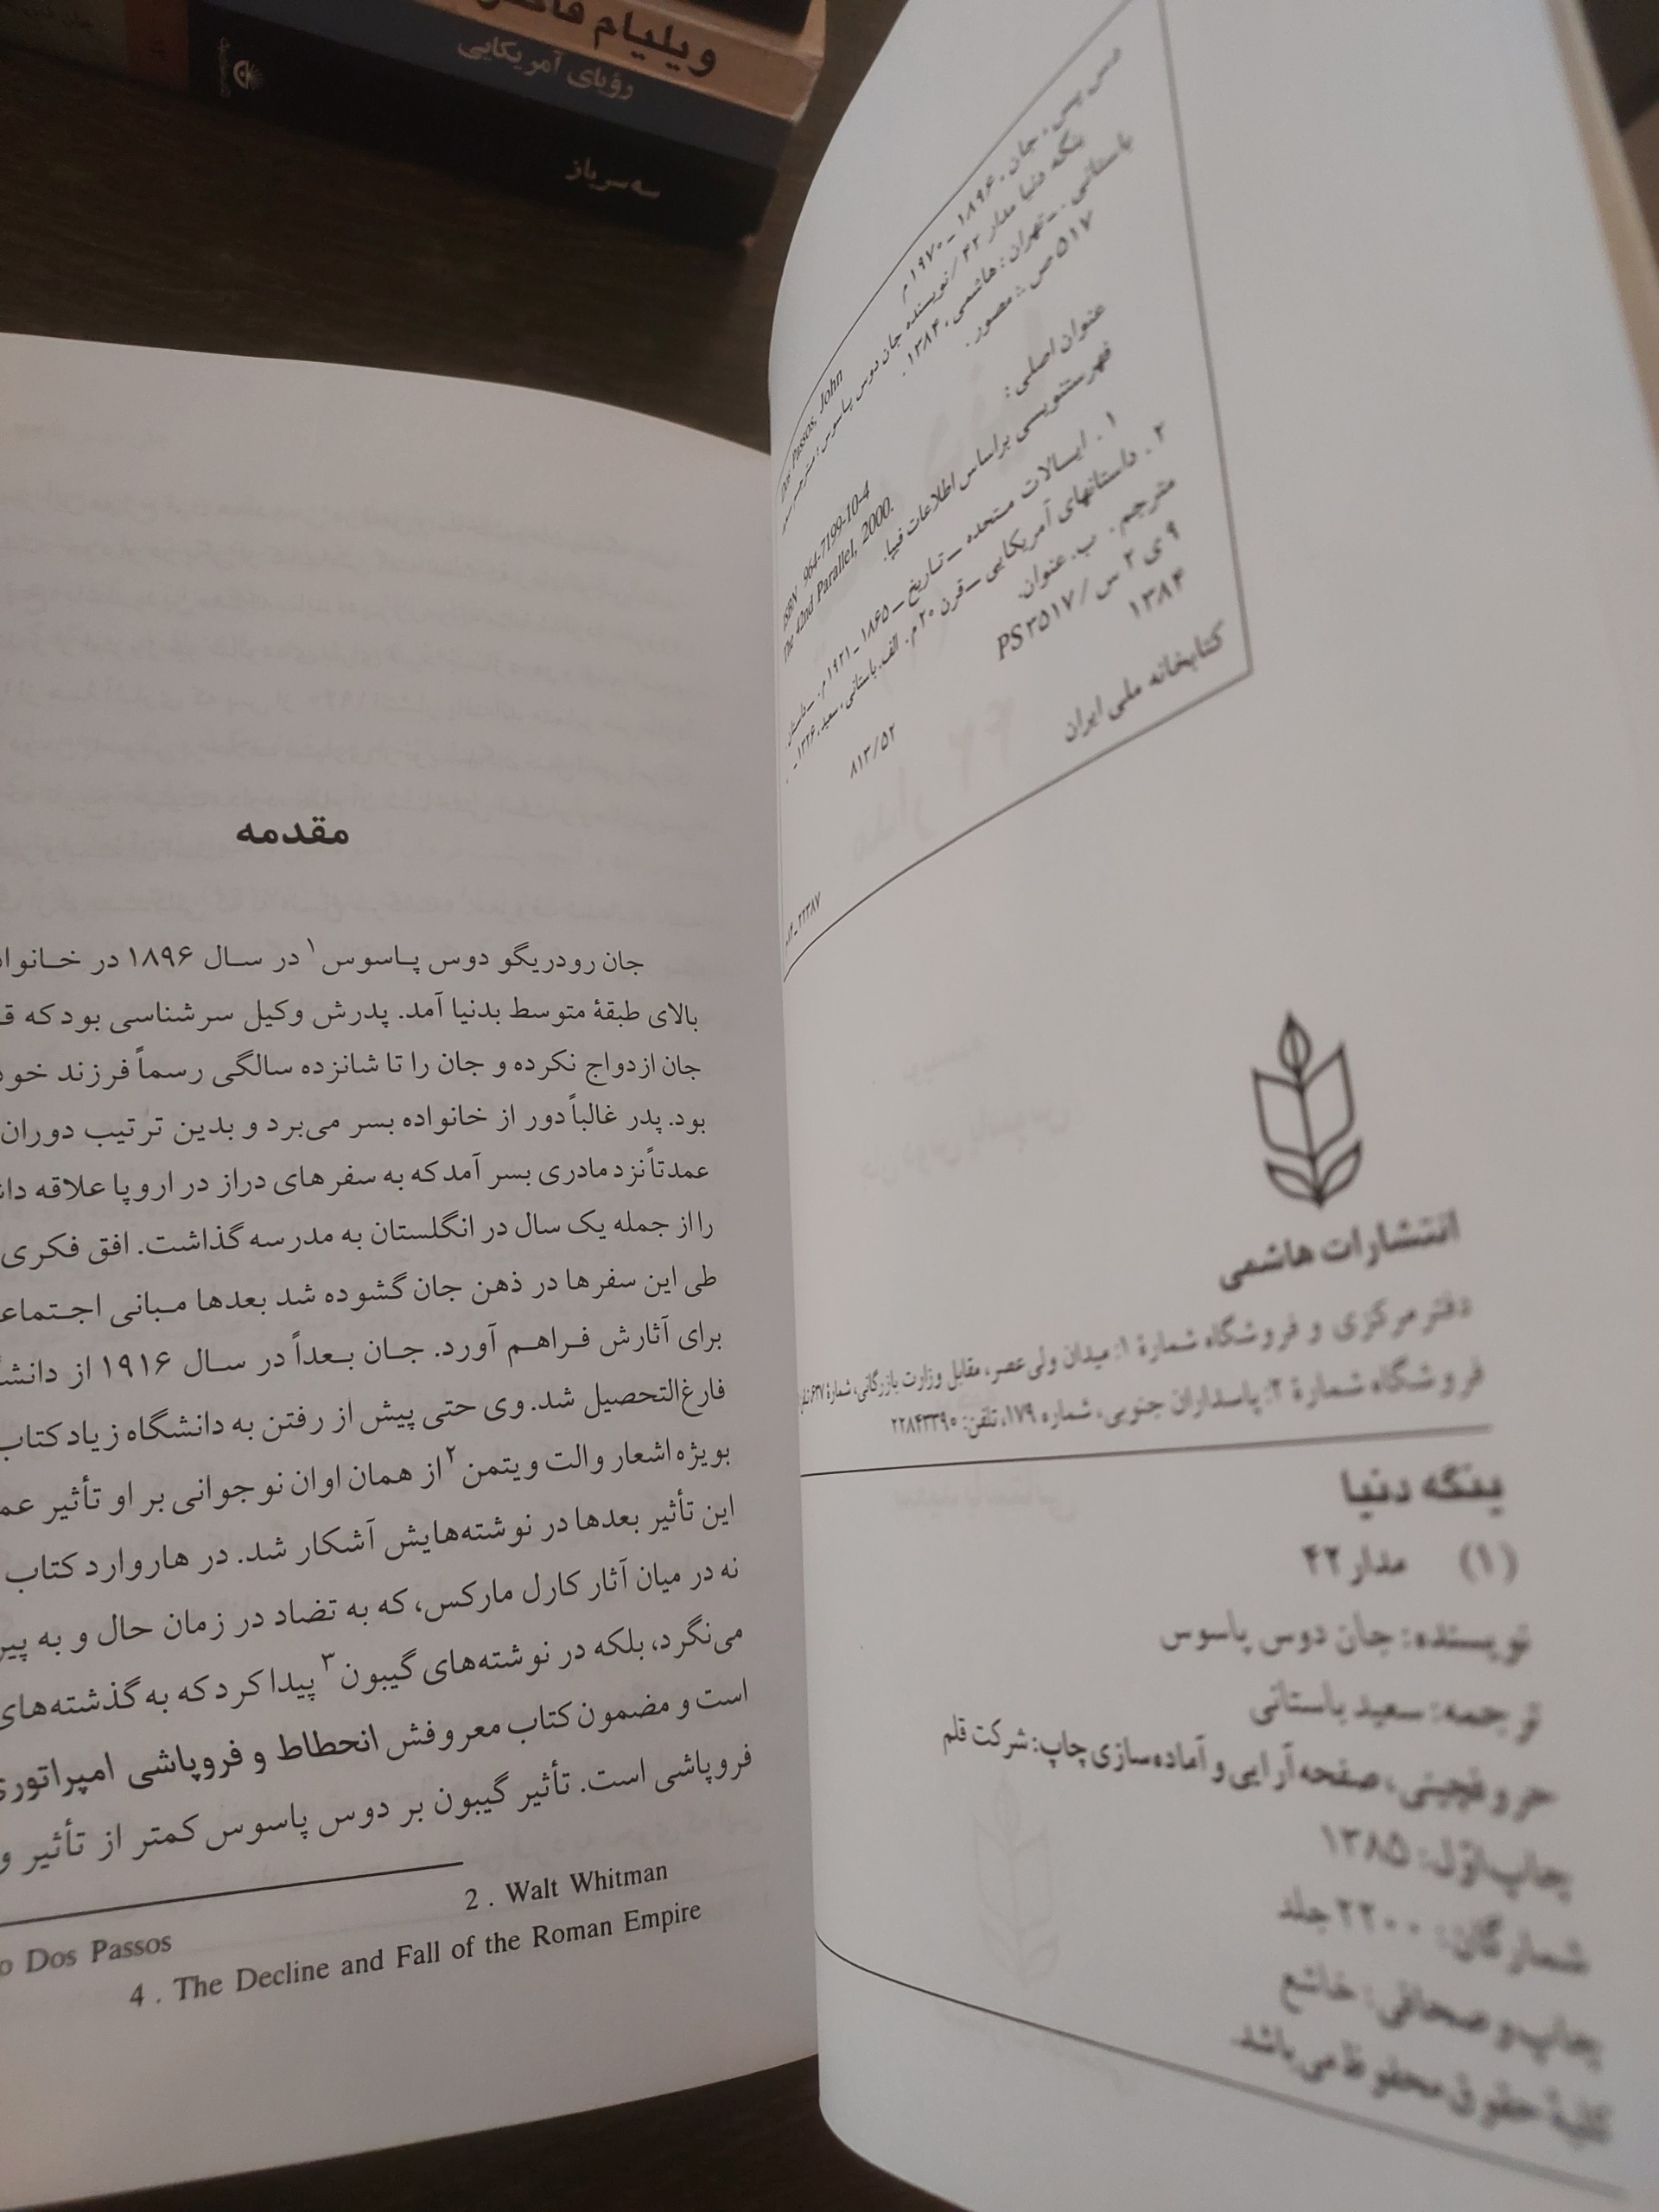 ویلیام
رؤیای آمریکایی
سه سرباز
دس پس، جان، ۱۸۹۶ ـ ۱۹۷۰ م
Dos Passos, John
ینگه دنیا مدار ۴۲ / نویسنده جان دوس پاسوس؛ مترجم سعید
باستانی. ـ تهران: هاشمی، ۱۳۸۴.
۵۱۷ ص: مصور.
ISBN 964-7199-10-4
عنوان اصلی: The 42nd Parallel, 2000.
فهرستنویسی براساس اطلاعات فیپا.
۱. ایالات متحده ـ تاریخ ـ ۱۸۶۵ ـ ۱۹۲۱ م. ـ داستان.
۲. داستانهای آمریکایی ـ قرن ۲۰ م. الف. باستانی، سعید، ۱۳۲۶ ـ .
مترجم. ب. عنوان.
۹ ی ۲ س / PS ۳۵۱۷
۸۱۳/۵۲
۱۳۸۴
کتابخانه ملی ایران
انتشارات هاشمی
دفتر مرکزی و فروشگاه شمارۀ ۱: میدان ولی عصر، مقابل وزارت بازرگانی، شمارۀ ۶۳۷
فروشگاه شمارۀ ۲: پاسداران جنوبی، شماره ۱۷۹، تلفن: ۲۲۸۴۳۳۹۰
ینگه دنیا
(۱) مدار ۴۲
نویسنده: جان دوس پاسوس
ترجمه: سعید باستانی
حروفچینی، صفحه آرایی و آماده سازی چاپ: شرکت قلم
چاپ اوّل: ۱۳۸۵
شمارگان: ۲۲۰۰ جلد
چاپ و صحافی: خاشع
کلیۀ حقوق محفوظ می باشد.
مقدمه
جان رودریگو دوس پاسوس۱ در سال ۱۸۹۶ در خانواد
بالای طبقۀ متوسط بدنیا آمد. پدرش وکیل سرشناسی بود که ق
جان ازدواج نکرده و جان را تا شانزده سالگی رسماً فرزند خود
بود. پدر غالباً دور از خانواده بسر می‌برد و بدین ترتیب دوران
عمدتاً نزد مادری بسر آمد که به سفرهای دراز در اروپا علاقه داش
را از جمله یک سال در انگلستان به مدرسه گذاشت. افق فکری
طی این سفرها در ذهن جان گشوده شد بعدها مبانی اجتماعی
برای آثارش فراهم آورد. جان بعداً در سال ۱۹۱۶ از دانشگ
فارغ‌التحصیل شد. وی حتی پیش از رفتن به دانشگاه زیاد کتاب
بویژه اشعار والت ویتمن۲ از همان اوان نوجوانی بر او تأثیر عم
این تأثیر بعدها در نوشته‌هایش آشکار شد. در هاروارد کتاب
نه در میان آثار کارل مارکس، که به تضاد در زمان حال و به پیر
می‌نگرد، بلکه در نوشته‌های گیبون۳ پیدا کرد که به گذشته‌های
است و مضمون کتاب معروفش انحطاط و فروپاشی امپراتوری
فروپاشی است. تأثیر گیبون بر دوس پاسوس کمتر از تأثیر و
2 . Walt Whitman
o Dos Passos
4 . The Decline and Fall of the Roman Empire